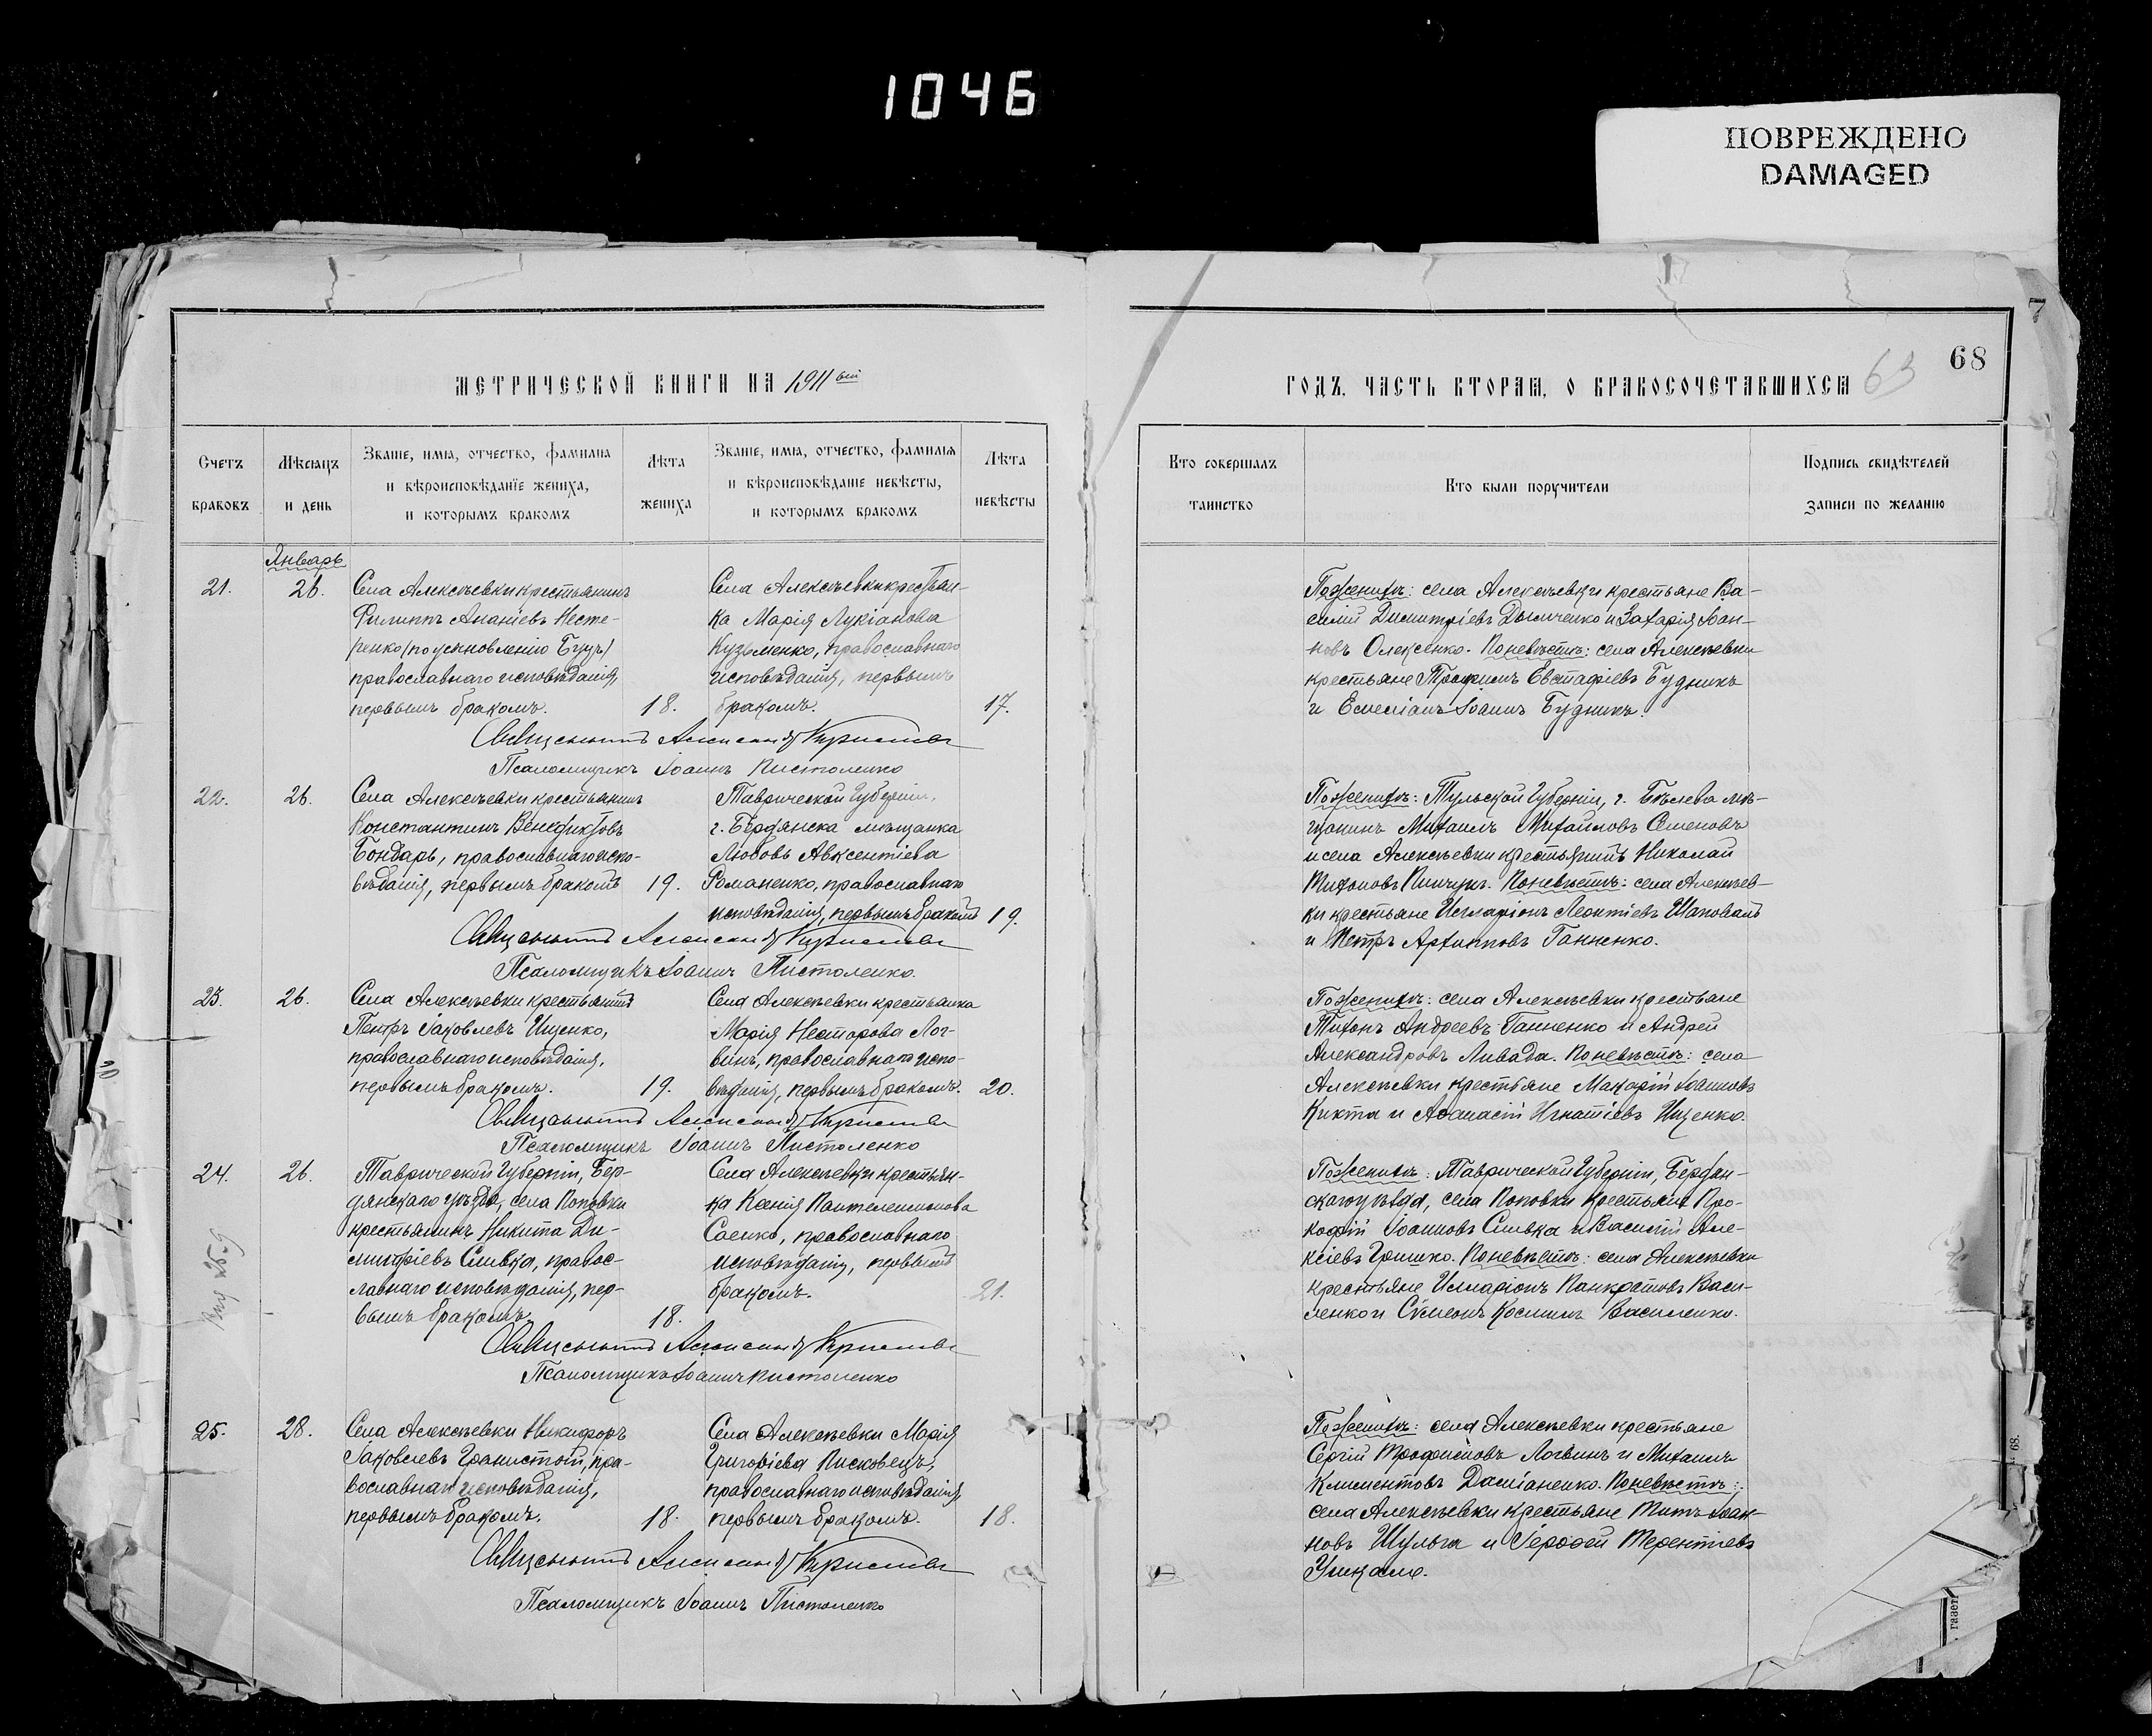 1046
ПОВРЕЖДЕНО
DAMAGED
7
68
63
МЕТРИЧЕСКОЙ КНИГИ НА 1911 ый
ГОДЪ, ЧАСТЬ ВТОРАЯ, О БРАКОСОЧЕТАВШИХСЯ
Счетъ
браковъ
Мѣсяцъ
и день
Званіе, имя, отчество, фамилія
и вѣроисповѣданіе жениха,
и которымъ бракомъ
Лѣта
жениха
Званіе, имя, отчество, фамилія
и вѣроисповѣданіе невѣсты,
и которымъ бракомъ
Лѣта
невѣсты
Кто совершалъ
таинство
Кто были поручители
Подпись свидѣтелей
записи по желанію
Январь
21.
26.
Села Алексѣевки крестьянинъ
Филиппъ Ананіевъ Несте-
ренко (по усыновленію Буцъ)
православнаго исповѣданія,
первымъ бракомъ.
18.
Села Алексѣевки крестьян-
ка Марія Лукіанова
Кузьменко, православнаго
исповѣданія, первымъ
бракомъ.
17.
Священникъ Александръ
Псаломщикъ Іоаннъ Пистоленко
По женихѣ: села Алексѣевки крестьяне Ва-
силій Димитріевъ Дымченко и Захарія Іоан-
новъ Олексенко. По невѣстѣ: села Алексѣевки
крестьяне Трофимъ Евстафіевъ Будникъ
и Емеліанъ Іоаннъ Будникъ.
22.
26.
Села Алексѣевки крестьянинъ
Константинъ Венедиктовъ
Бондарь, православнаго испо-
вѣданія, первымъ бракомъ
19.
Таврической Губерніи,
г. Бердянска мѣщанка
Любовь Авксентіева
Романенко, православнаго
исповѣданія, первымъ бракомъ
19.
Священникъ Александръ
Псаломщикъ Іоаннъ Пистоленко.
По женихѣ: Тульской Губерніи, г. Бѣлева мѣ-
щанинъ Михаилъ Михайловъ Семеновъ
и села Алексѣевки крестьянинъ Николай
Тихоновъ Пинчукъ. По невѣстѣ: села Алексѣев-
ки крестьяне Илларіонъ Леонтіевъ Шаповалъ
и Петръ Архипповъ Ганненко.
23.
26.
Села Алексѣевки крестьянинъ
Петръ Іаковлевъ Ищенко,
православнаго исповѣданія,
первымъ бракомъ.
19.
Села Алексѣевки крестьянка
Марія Несторова Лог-
винъ, православнаго испо-
вѣданія, первымъ бракомъ.
20.
Священникъ Александръ
Псаломщикъ Іоаннъ Пистоленко
По женихѣ: села Алексѣевки крестьяне
Тихонъ Андреевъ Ганненко и Андрей
Александровъ Ливада. По невѣстѣ: села
Алексѣевки крестьяне Макарій Іоанновъ
Кикта и Афанасій Игнатіевъ Ищенко.
24.
26.
Таврической Губерніи, Бер-
дянскаго уѣзда, села Поповки
крестьянинъ Никита Ди-
митріевъ Сливка, правос-
лавнаго исповѣданія, пер-
вымъ бракомъ.
18.
Села Алексѣевки крестьян-
ка Ксенія Пантелеимонова
Саенко, православнаго
исповѣданія, первымъ
бракомъ.
21.
Священникъ Александръ
Псаломщикъ Іоаннъ Пистоленко
По женихѣ: Таврической Губерніи, Бердян-
скаго уѣзда, села Поповки крестьяне Про-
кофій Іоанновъ Сливка и Василій Але-
ксіевъ Гришко. По невѣстѣ: села Алексѣевки
крестьяне Илларіонъ Панкратовъ Васи-
ленко и Сѵмеонъ Косминъ Василенко.
25.
28.
Села Алексѣевки Никифоръ
Іаковлевъ Гранистый, пра-
вославнаго исповѣданія,
первымъ бракомъ.
18.
Села Алексѣевки Марія
Григоріева Писковецъ,
православнаго исповѣданія,
первымъ бракомъ.
18.
Священникъ Александръ
Псаломщикъ Іоаннъ Пистоленко
По женихѣ: села Алексѣевки крестьяне
Сергій Трофимовъ Логвинъ и Михаилъ
Климентовъ Даміаненко. По невѣстѣ:
села Алексѣевки крестьяне Титъ Іоан-
новъ Шульга и Іерофей Терентіевъ
68.
газет